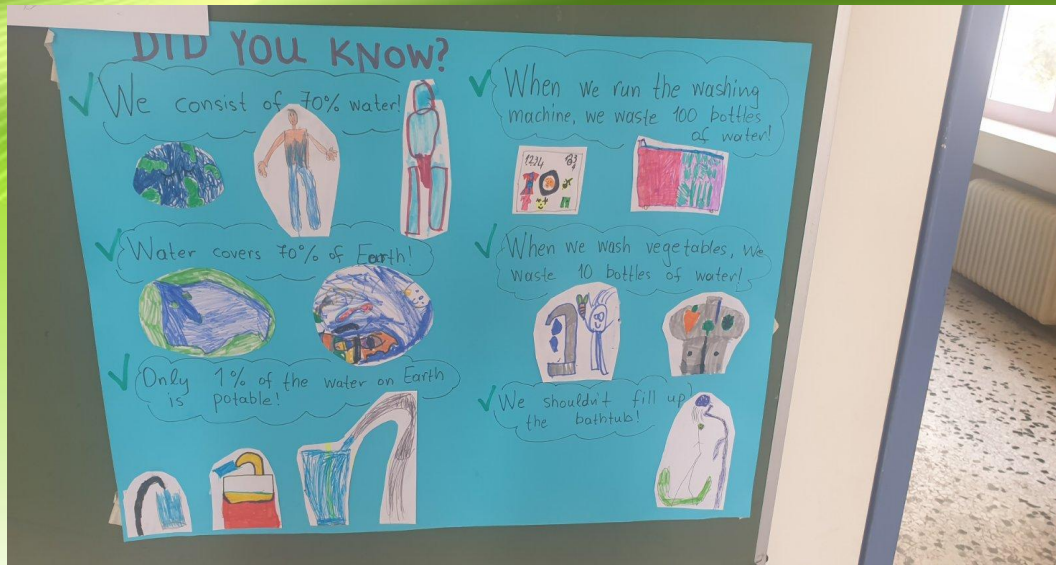 DID YOU KNOW?
✓ We consist of 70% water!
✓ Water covers 70% of Earth!
✓ Only 1% of the water on Earth
is potable!
✓ When we run the washing
machine, we waste 100 bottles
of water!
1234
✓ When we wash vegetables, we
waste 10 bottles of water!
✓ We shouldn't fill up
the bathtub!